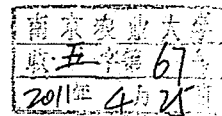 南京农业大学
职·五字第67号
2011年4月25